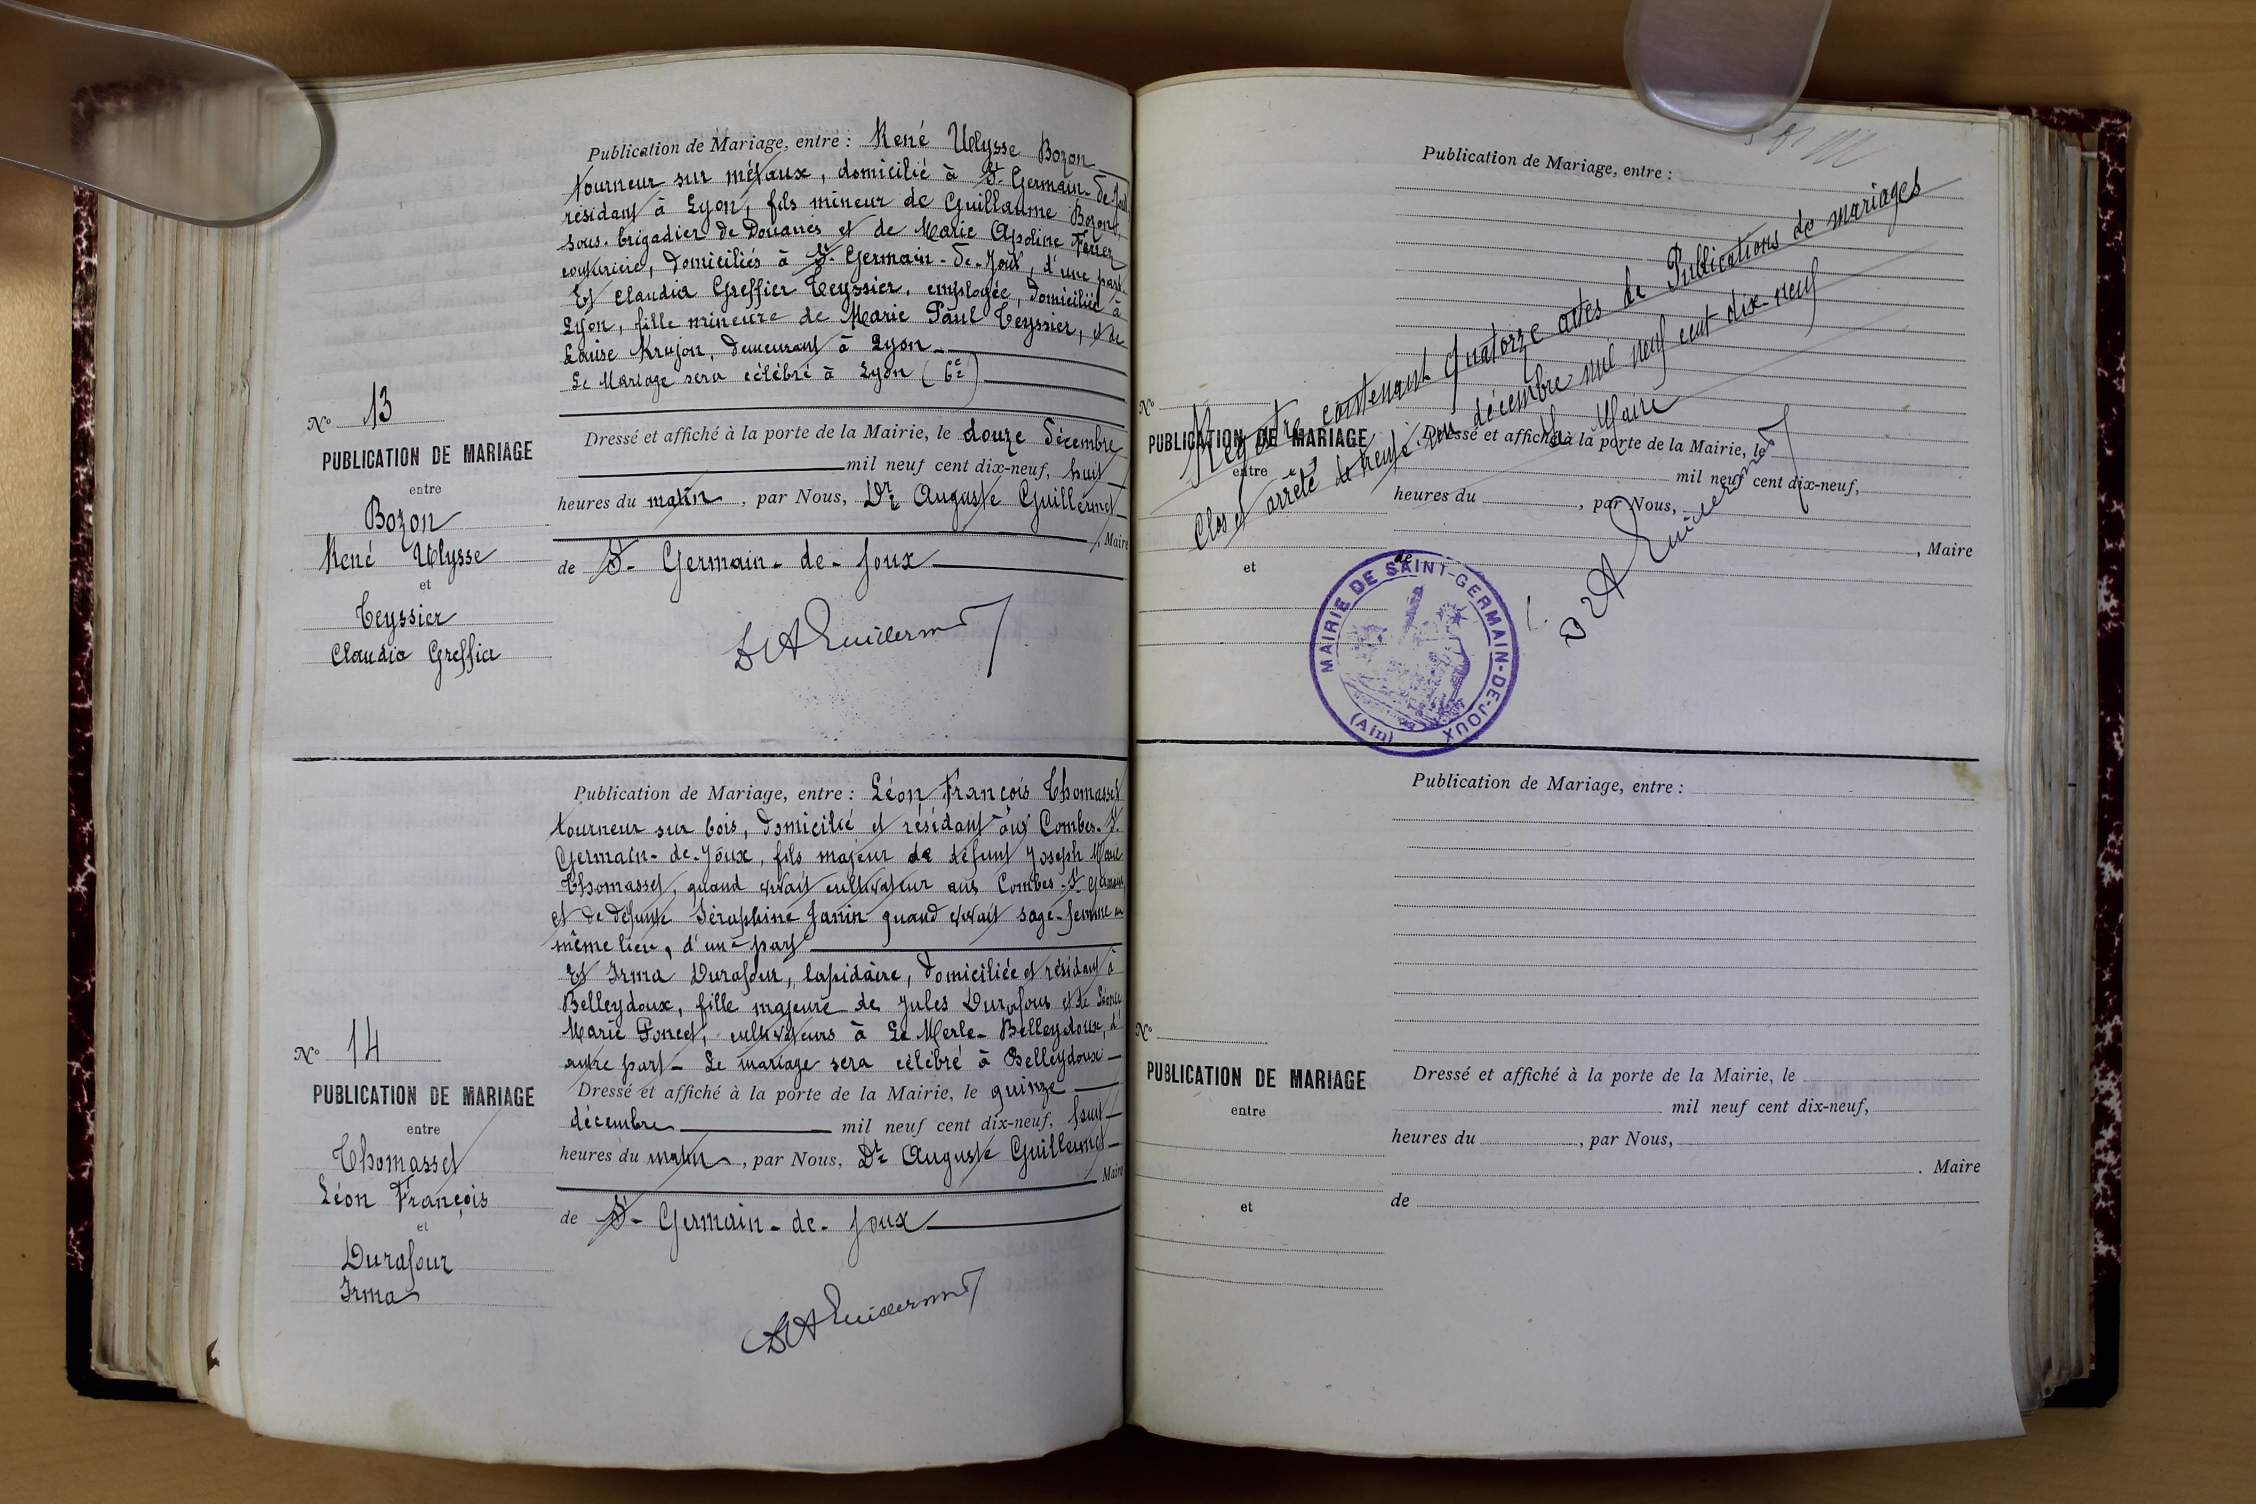 Publication de Mariage, entre : René Ulysse Bozon
tourneur sur métaux, domicilié à St. Germain-de-Joux
résidant à Lyon, fils mineur de Guillaume Bozon,
sous-brigadier de Douanes et de Marie Apoline Ferrer
couturière, domiciliés à St. Germain-de-Joux, d'une part
Et Claudia Greffier Teyssier, employée, domiciliée à
Lyon, fille mineure de Marie Paul Teyssier, et de
Louise Krujon, demeurant à Lyon
Le Mariage sera célébré à Lyon (6e)
N° 13
PUBLICATION DE MARIAGE
entre
Bozon
René Ulysse
et
Teyssier
Claudia Greffier
Dressé et affiché à la porte de la Mairie, le douze décembre
mil neuf cent dix-neuf, huit
heures du matin, par Nous, Dr. Auguste Guillermet
, Maire
de St. Germain-de-Joux
Dr A Guillermet
Publication de Mariage, entre : Léon François Thomasset
tourneur sur bois, domicilié et résidant aux Combes-St.
Germain-de-Joux, fils majeur de défunt Joseph Marie
Thomasset, quand vivait cultivateur aux Combes-St. Germain
et de défunte Séraphine Janin quand vivait sage-femme au
même lieu, d'une part
Et Irma Durafour, lapidaire, domiciliée et résidant à
Belleydoux, fille majeure de Jules Durafour et de Léonie
Marie Poncet, cultivateurs à Le Merle-Belleydoux, d'
autre part - Le mariage sera célébré à Belleydoux
N° 14
PUBLICATION DE MARIAGE
entre
Thomasset
Léon François
et
Durafour
Irma
Dressé et affiché à la porte de la Mairie, le quinze
décembre mil neuf cent dix-neuf, huit
heures du matin, par Nous, Dr. Auguste Guillermet
Maire
de St. Germain-de-Joux
Dr A Guillermet
Publication de Mariage, entre :
Registre contenant quatorze actes de Publications de mariages
Clos et arrêté le trente-un décembre mil neuf cent dix-neuf
Le Maire
Dr A Guillermet
N°
PUBLICATION DE MARIAGE
entre
et
Dressé et affiché à la porte de la Mairie, le
mil neuf cent dix-neuf,
heures du , par Nous,
, Maire
de
MAIRIE DE SAINT-GERMAIN-DE-JOUX
(Ain)
Publication de Mariage, entre :
N°
PUBLICATION DE MARIAGE
entre
et
Dressé et affiché à la porte de la Mairie, le
mil neuf cent dix-neuf,
heures du , par Nous,
. Maire
de